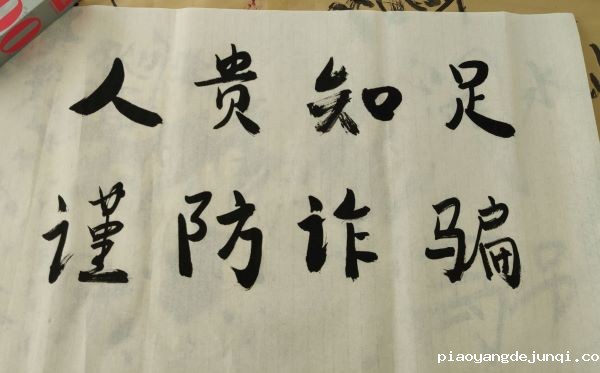 人贵知足
谨防诈骗
piaoyangdejunqi.co